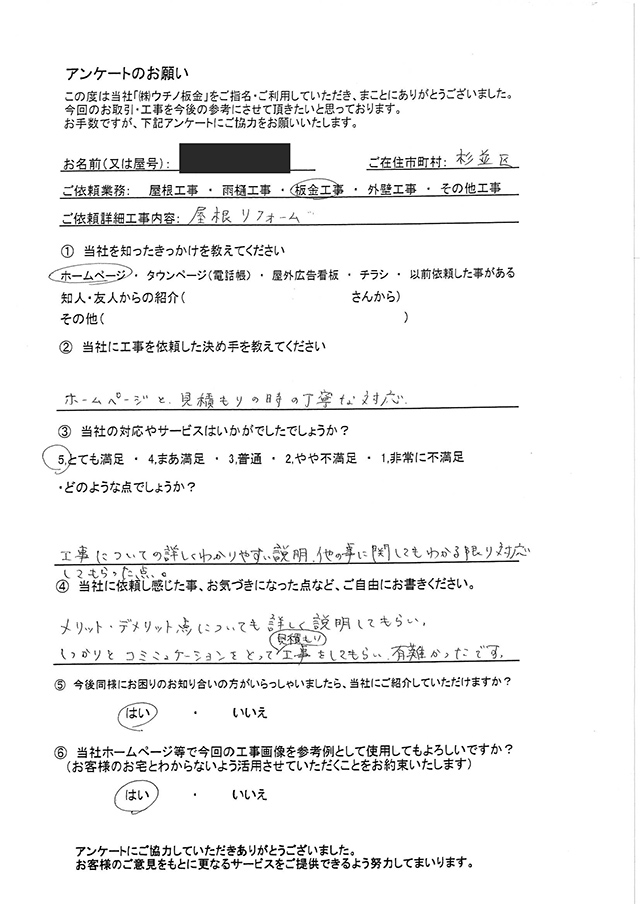 アンケートのお願い
この度は当社「㈱ウチノ板金」をご指名・ご利用していただき、まことにありがとうございました。
今回のお取引・工事を今後の参考にさせて頂きたいと思っております。
お手数ですが、下記アンケートにご協力をお願いいたします。
お名前(又は屋号): ご在住市町村: 杉並区
ご依頼業務: 屋根工事 ・ 雨樋工事 ・ 板金工事 ・ 外壁工事 ・ その他工事
ご依頼詳細工事内容: 屋根リフォーム
① 当社を知ったきっかけを教えてください
ホームページ ・ タウンページ(電話帳) ・ 屋外広告看板 ・ チラシ ・ 以前依頼した事がある
知人・友人からの紹介( さんから)
その他( )
② 当社に工事を依頼した決め手を教えてください
ホームページと、見積もりの時の丁寧な対応.
③ 当社の対応やサービスはいかがでしたでしょうか?
5,とても満足 ・ 4,まあ満足 ・ 3,普通 ・ 2,やや不満足 ・ 1,非常に不満足
・どのような点でしょうか?
工事についての詳しくわかりやすい説明、他の事に関してもわかる限り対応
してもらった点。
④ 当社に依頼し感じた事、お気づきになった点など、ご自由にお書きください。
メリット・デメリット点についても詳しく説明してもらい,
見積もり
しっかりとコミュニケーションをとって工事をしてもらい、有難かったです。
⑤ 今後同様にお困りのお知り合いの方がいらっしゃいましたら、当社にご紹介していただけますか?
はい ・ いいえ
⑥ 当社ホームページ等で今回の工事画像を参考例として使用してもよろしいですか?
(お客様のお宅とわからないよう活用させていただくことをお約束いたします)
はい ・ いいえ
アンケートにご協力していただきありがとうございました。
お客様のご意見をもとに更なるサービスをご提供できるよう努力してまいります。